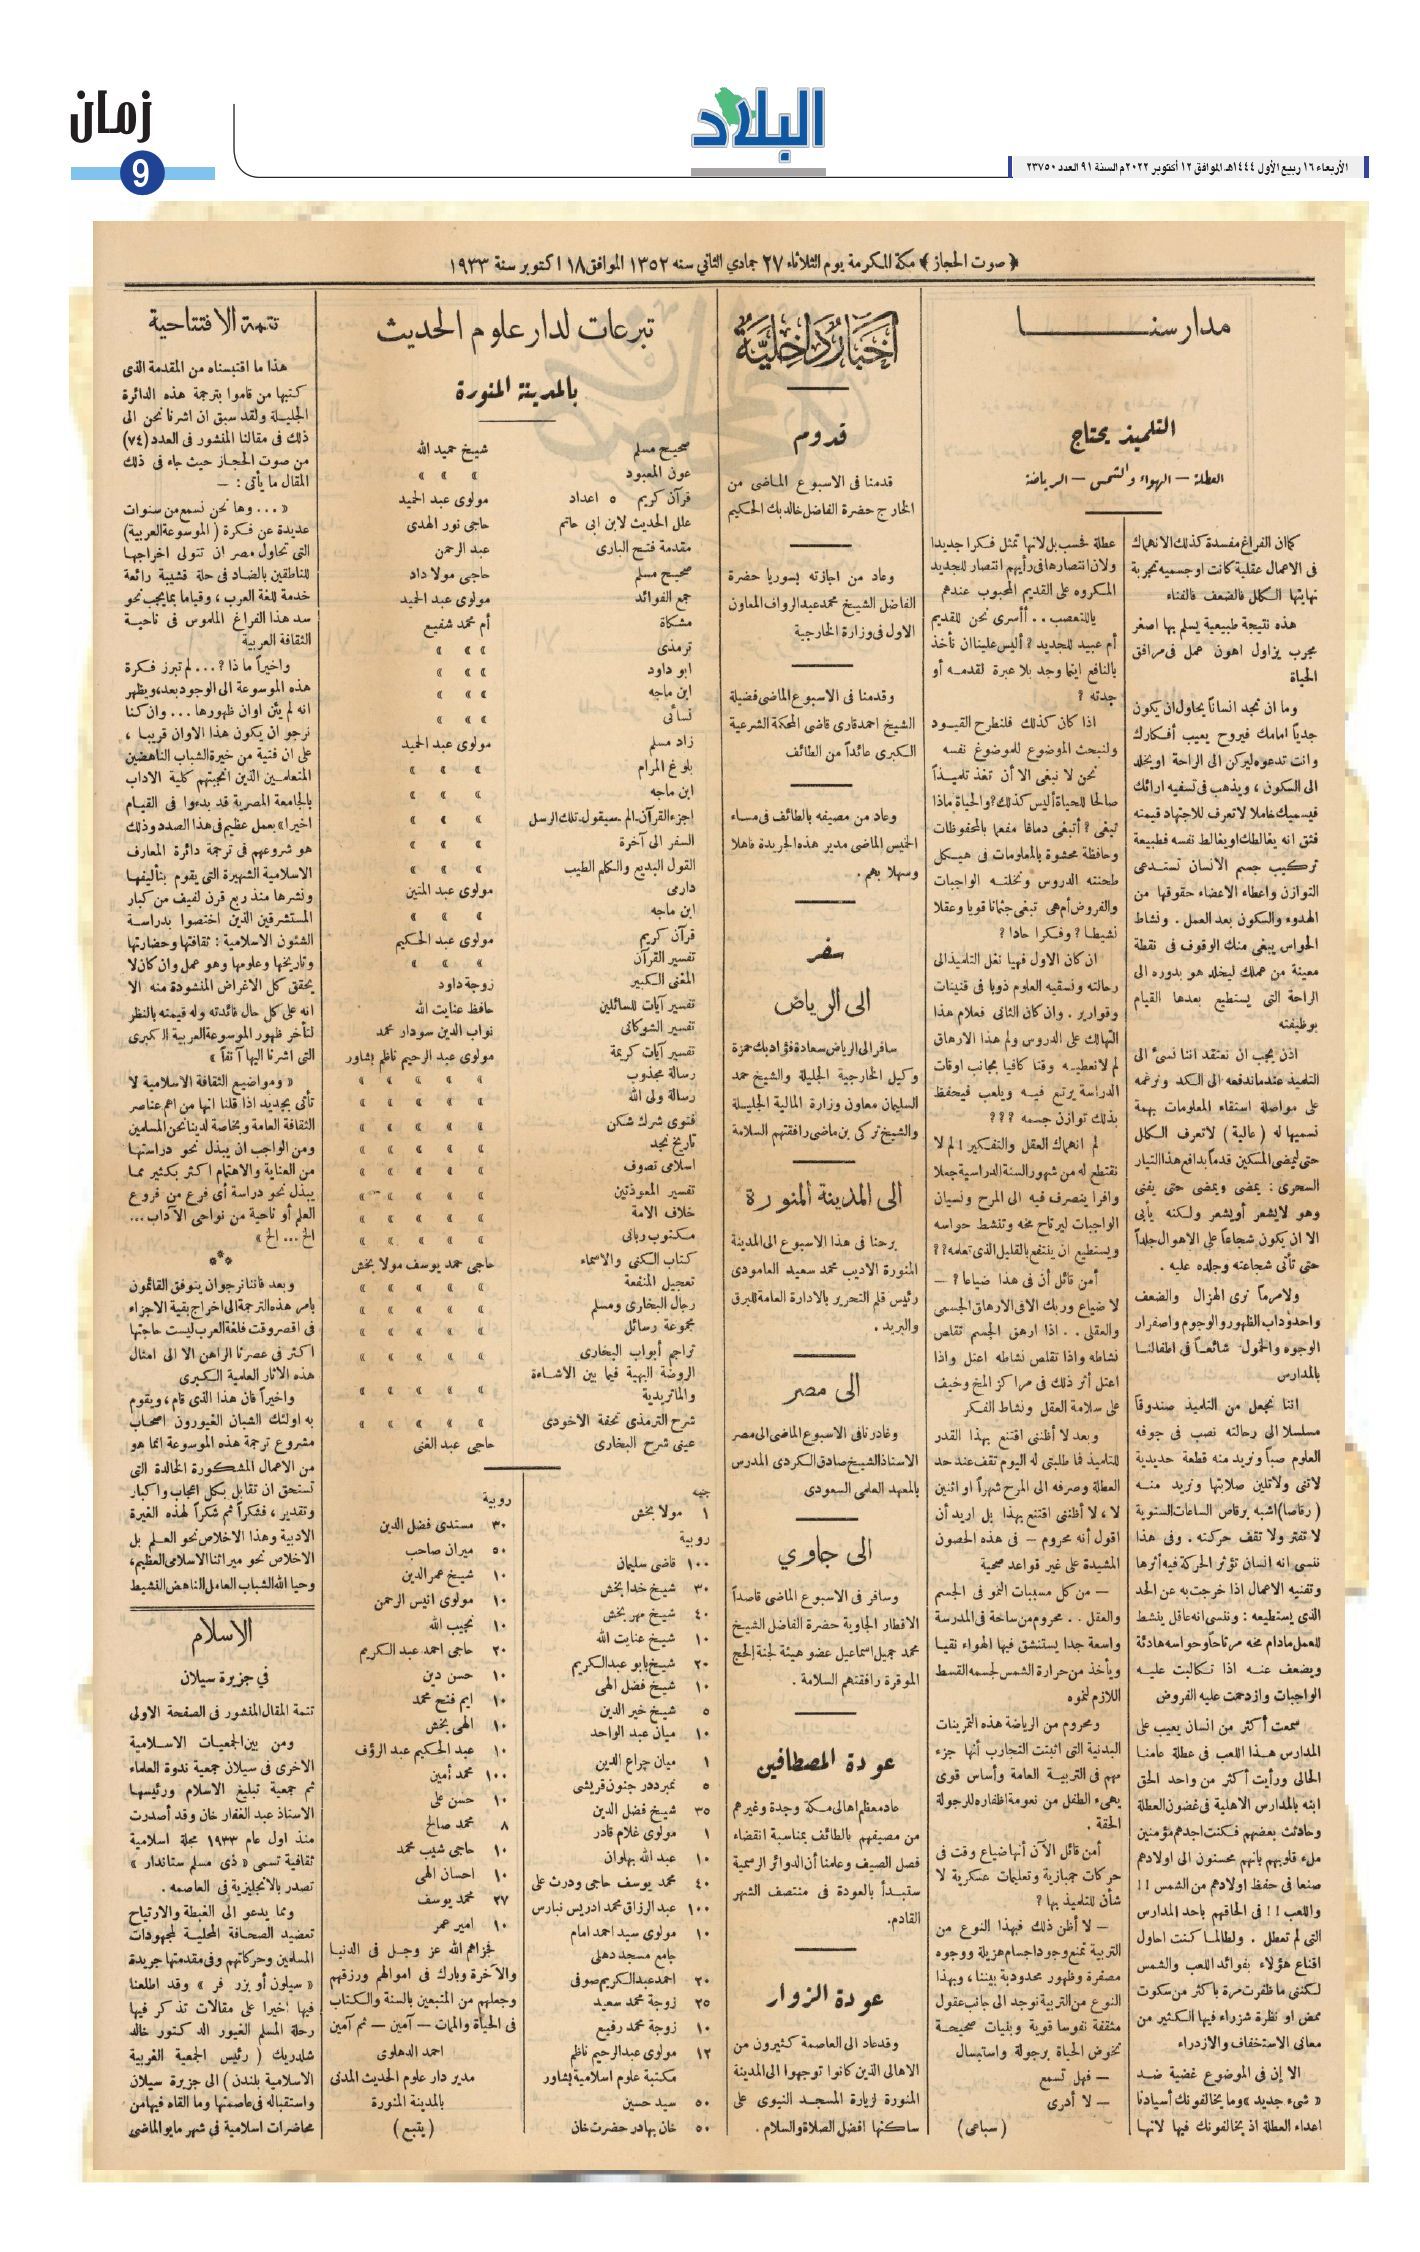 زمان
9
البلاد
الأربعاء ١٦ ربيع الأول ١٤٤٤هـ الموافق ١٢ أكتوبر ٢٠٢٢م السنة ٩١ العدد ٢٣٧٥٠
﴿ صوت الحجاز ﴾ مكة المكرمة يوم الثلاثاء ٢٧ جمادي الثاني سنه ١٣٥٢ الموافق ١٨ اكتوبر سنة ١٩٣٣
مدارسنا
التلميذ يحتاج
العطلة – الهواء والشمس – الرياضة
كما ان الفراغ مفسدة كذلك الانهماك
فى الاعمال عقلية كانت او جسميه تجربة
نهايتها الكلل فالضعف فالفناء
هذه نتيجة طبيعية يسلم بها اصغر
مجرب يزاول اهون عمل فى مرافق
الحياة
وما ان تجد انساناً يحاول ان يكون
جدياً امامك فيروح يعيب أفكارك
وانت تدعوه ليركن الى الراحة اويخلد
الى السكون ، ويذهب فى تسفيه ارائك
فيسميك خاملا لاتعرف للاجتهاد قيمته
فثق انه يغالطك او يغالط نفسه فطبيعة
تركيب جسم الانسان تستدعى
التوازن واعطاء الاعضاء حقوقها من
الهدوء والسكون بعد العمل . ونشاط
الحواس يبغى منك الوقوف فى نقطة
معينة من عملك ليخلد هو بدوره الى
الراحة التى يستطيع بعدها القيام
بوظيفته
اذن يجب ان نعتقد اننا نسىء الى
التلميذ عندما ندفعه الى الكد ونرغمه
على مواصلة استقاء المعلومات بهمة
نسميها له ( عالية ) لاتعرف الكلل
حتى ليمضى المسكين قدماً بدافع هذا التيار
السحرى : يمضى ويمضى حتى يفنى
وهو لايشعر أويشعر ولكنه يأبى
الا ان يكون شجاعاً على الاهوال جلداً
حتى تأتى شجاعته وجلده عليه .
ولامر ما نرى الهزال والضعف
واحدوداب الظهور والوجوم واصفرار
الوجوه والخمول شائعاً فى اطفالنا
بالمدارس
اننا نجعل من التلميذ صندوقاً
مسلسلا الى رحالته نصب فى جوفه
العلوم صباً ونريد منه قطعة حديدية
لاتنى ولاتلين صلابتها ونريد منه
( رقاصا ) اشبه برقاص الساعات السنوية
لا تفتر ولا تقف حركته . وفى هذا
ننسى انه انسان تؤثر الحركة فيه أثرها
وتفنيه الاعمال اذا خرجت به عن الحد
الذى يستطيعه : وننسى انه عاقل ينشط
للعمل مادام مخه مرتاحاً وحواسه هادئة
ويضعف عنه اذا تكالبت عليه
الواجبات وازدحمت عليه الفروض
سمعت أكثر من انسان يعيب على
المدارس هذا اللعب فى عطلة عامنا
الحالى ورأيت أكثر من واحد الحق
ابنه بالمدارس الاهلية فى غضون العطلة
وحادثت بعضهم فكنت اجدهم مؤمنين
ملء قلوبهم بانهم محسنون الى اولادهم
صنعا فى حفظ اولادهم من الشمس !!
واللعب !! فى الحاقهم باحد المدارس
التى لم تعطل . ولطالما كنت احاول
اقناع هؤلاء بفوائد اللعب والشمس
لكننى ما ظفرت مرة باكثر من سكوت
ممض او نظرة شزراء فيها الكثير من
معانى الاستخفاف والازدراء
الا إن فى الموضوع غضبة ضد
« شىء جديد » وما يخالفونك أسيادنا
اعداء العطلة اذ يخالفونك فيها لانها
عطلة فحسب بل لانها تمثل فكرا جديدا
ولان انتصارها فى رأيهم انتصار للجديد
المكروه على القديم المحبوب عندهم
ياللتعصب . . أأسرى نحن للقديم
أم عبيد للجديد ؟ أليس علينا ان نأخذ
بالنافع اينما وجد بلا عبرة لقدمه أو
جدته ؟
اذا كان كذلك فلنطرح القيود
ولنبحث الموضوع للموضوع نفسه
نحن لا نبغى الا أن نغذ تلميذاً
صالحا للحياة أليس كذلك ؟ والحياة ماذا
تبغى ؟ أتبغى دماغا مفعما بالمحفوظات
وحافظة محشوة بالمعلومات فى هيكل
طحنته الدروس ونخلته الواجبات
والفروض أم هى تبغى جثمانا قويا وعقلا
نشيطا ؟ وفكرا حادا ؟
ان كان الاول فهيا نغل التلميذ الى
رحالته ونسقيه العلوم ذوبا فى قنينات
وقوارير . وان كان الثانى فعلام هذا
التهالك على الدروس ولم هذا الارهاق
لم لانعطيه وقتا كافيا بجانب اوقات
الدراسة يرتع فيه ويلعب فيحفظ
بذلك توازن جسمه ؟؟؟
لم انهماك العقل والتفكير ! لم لا
نقتطع له من شهور السنة الدراسية جعلا
وافرا ينصرف فيه الى المرح ونسيان
الواجبات ليرتاح مخه وتنشط حواسه
ويستطيع ان ينتفع بالقليل الذى تعلمه ؟؟
أمن قائل أن فى هذا ضياعا ؟ –
لا ضياع وربك الا فى الارهاق الجسمى
والعقلى . . اذا ارهق الجسم تقلص
نشاطه واذا تقلص نشاطه اعتل واذا
اعتل أثر ذلك فى مراكز المخ وخيف
على سلامة العقل ونشاط الفكر
وبعد لا أظننى اقتنع بهذا القدر
للتلميذ فما طلبتى له اليوم تقف عند حد
العطلة وصرفه الى المرح شهراً او اثنين
لا ، لا أظننى اقتنع بهذا بل اريد أن
اقول أنه محروم – فى هذه الحصون
المشيدة على غير قواعد صحية
– من كل مسببات النمو فى الجسم
والعقل . . محروم من ساحة فى المدرسة
واسعة جدا يستنشق فيها الهواء نقيا
ويأخذ من حرارة الشمس لجسمه القسط
اللازم لنموه
ومحروم من الرياضة هذه التمرينات
البدنية التى اثبتت التجارب أنها جزء
مهم فى التربية العامة وأساس قوى
يهىء الطفل من نعومة اظفاره للرجولة
الحقة .
أمن قائل الآن أنها ضياع وقت فى
حركات جمبازية وتعليمات عسكرية لا
شأن للتلميذ بها ؟
– لا أظن ذلك فبهذا النوع من
التربية تمنع وجود اجسام هزيلة ووجوه
مصفرة وظهور محدودبة بيننا ، وبهذا
النوع من التربية نوجد الى جانب عقول
مثقفة نفوسا قوية وبنيات صحيحة
تخوض الحياة برجولة واستبسال
– فهل تسمع
– لا أدرى
( سباعى )
أخبار داخلية
قدوم
قدمنا فى الاسبوع الماضى من
الخارج حضرة الفاضل خالد بك الحكيم
وعاد من اجازته بسوريا حضرة
الفاضل الشيخ محمد عبد الرواف المعاون
الاول فى وزارة الخارجية
وقدمنا فى الاسبوع الماضى فضيلة
الشيخ احمد قارى قاضى المحكمة الشرعية
الكبرى عائداً من الطائف
وعاد من مصيفه بالطائف فى مساء
الخميس الماضى مدير هذه الجريدة فاهلا
وسهلا بهم .
سفر
الى الرياض
سافر الى الرياض سعادة فؤاد بك حمزة
وكيل الخارجية الجليلة والشيخ حمد
السليمان معاون وزارة المالية الجليلة
والشيخ تركى بن ماضى رافقتهم السلامة
الى المدينة المنورة
برحنا فى هذا الاسبوع الى المدينة
المنورة الاديب محمد سعيد العامودى
رئيس قلم التحرير بالادارة العامة للبرق
والبريد .
الى مصر
وغادرنا فى الاسبوع الماضى الى مصر
الاستاذ الشيخ صادق الكردى المدرس
بالمعهد العلمى السعودى
الى جاوي
وسافر فى الاسبوع الماضى قاصداً
الاقطار الجاوية حضرة الفاضل الشيخ
محمد جميل اسماعيل عضو هيئة لجنة الحج
الموقرة رافقتهم السلامة .
عودة المصطافين
عاد معظم اهالى مكة وجدة وغيرهم
من مصيفهم بالطائف بمناسبة انقضاء
فصل الصيف وعلمنا أن الدوائر الرسمية
ستبدأ بالعودة فى منتصف الشهر
القادم .
عودة الزوار
وقد عاد الى العاصمة كثيرون من
الاهالى الذين كانوا توجهوا الى المدينة
المنورة لزيارة المسجد النبوى على
ساكنها افضل الصلاة والسلام .
تبرعات لدار علوم الحديث
بالمدينة المنورة
صحيح مسلم شيخ حميد الله
عون المعبود » » »
قرآن كريم ٥ اعداد مولوى عبد الحميد
علل الحديث لابن ابى حاتم حاجى نور الهدى
مقدمة فتح البارى عبد الرحمن
صحيح مسلم حاجى مولا داد
جمع الفوائد مولوى عبد الحميد
مشكاة أم محمد شفيع
ترمذى » » »
ابو داود » » »
ابن ماجه » » »
نسائى » » »
زاد مسلم مولوى عبد الحميد
بلوغ المرام » » »
ابن ماجه » » »
اجزء القرآن . الم . سيقول . تلك الرسل » » »
السفر الى آخرة » » »
القول البديع والكلم الطيب » » »
دارمى مولوى عبد المتين
ابن ماجه » » »
قرآن كريم مولوى عبد الحكيم
تفسير القرآن » » »
المغنى الكبير زوجة داود
تفسير آيات للسائلين حافظ عنايت الله
تفسير الشوكانى نواب الدين سودار محمد
تفسير آيات كريمة مولوى عبد الرحيم ناظم بشاور
رسالة مجذوب » » » » »
رسالة ولى الله » » » » »
فتوى شرك شكن » » » » »
تاريخ نجد » » » » »
اسلامى تصوف » » » » »
تفسير المعوذتين » » » » »
خلاف الامة » » » » »
مكتوب ربانى » » » » »
كتاب الكنى والاسماء حاجى حمد يوسف مولا بخش
تعجيل المنفعة » » » » »
رجال البخارى ومسلم » » » » »
مجموعة رسائل » » » » »
تراجم أبواب البخارى » » » » »
الروضة البهية فيما بين الاشاءة
والماتريدية » » » » »
شرح الترمذى تحفة الاخودى » » » » »
عينى شرح البخارى حاجى عبد الغنى
جنيه
١ مولا بخش
روبية
١٠٠ قاضى سليمان
٣٠ شيخ خدا بخش
٤٠ شيخ مهر بخش
١٠ شيخ عنايت الله
٢٠ شيخ بابو عبد الكريم
١٠ شيخ فضل الهى
٥ شيخ خير الدين
١٠ ميان عبد الواحد
١ ميان چراغ الدين
٥ نمبر ددر جنون قريشى
٣٥ شيخ فضل الدين
١ مولوى غلام قادر
١٠ عبد الله بهلوان
٤٠ محمد يوسف حاجى ودرث على
١٠٠ عبد الرزاق محمد ادريس نبارس
١٠ مولوى سيد احمد امام
جامع مسجد دهلى
٢٠ احمد عبد الكريم صوفى
٢٥ زوجة محمد سعيد
١٠ زوجة محمد رفيع
١٢ مولوى عبد الرحيم ناظم
مكتبة علوم اسلامية بشاور
٥٠ سيد حسين
٥٠ خان بهادر حضرت خان
روبية
٣٠ مستدى فضل الدين
٥٠ ميران صاحب
١٠ شيخ عمر الدين
١٠ مولوى انيس الرحمن
١٠ نجيب الله
٢٠ حاجى احمد عبد الكريم
١٠ حسن دين
١٠ ايم فتح محمد
١٠ الهى بخش
١٠ عبد الحكيم عبد الرؤف
١٠٠ محمد أمين
١٠ حسن على
٨ محمد صالح
١٠ حاجى شيب محمد
١٠ احسان الهى
٢٧ محمد يوسف
١٠ امير عمر
فجزاهم الله عز وجل فى الدنيا
والآخرة وبارك فى اموالهم ورزقهم
وجعلهم من المتبعين بالسنة والكتاب
فى الحياة والممات – آمين – ثم آمين
احمد الدهلوى
مدير دار علوم الحديث المدنى
بالمدينة المنورة
( يتبع )
تتمة الافتتاحية
هذا ما اقتبسناه من المقدمة الذى
كتبها من قاموا بترجمة هذه الدائرة
الجليلة ولقد سبق ان اشرنا نحن الى
ذلك فى مقالنا المنشور فى العدد (٧٤)
من صوت الحجاز حيث جاء فى ذلك
المقال ما يأتى : –
« . . . وها نحن نسمع من سنوات
عديدة عن فكرة ( الموسوعة العربية )
التى تحاول مصر ان تتولى اخراجها
للناطقين بالضاد فى حلة قشيبة رائعة
خدمة للغة العرب ، وقياما بما يجب نحو
سد هذا الفراغ الملموس فى ناحية
الثقافة العربية
واخيراً ماذا ؟ . . . لم تبرز فكرة
هذه الموسوعة الى الوجود بعد ، ويظهر
انه لم يئن اوان ظهورها . . . وان كنا
نرجو ان يكون هذا الاوان قريبا ،
على ان فتية من خيرة الشباب الناهضين
المتعلمين الذين انجبتهم كلية الاداب
بالجامعة المصرية قد بدءوا فى القيام
اخيرا » بعمل عظيم فى هذا الصدد وذلك
هو شروعهم فى ترجمة دائرة المعارف
الاسلامية الشهيرة التى يقوم بتأليفها
ونشرها منذ ربع قرن لفيف من كبار
المستشرقين الذين اختصوا بدراسة
الشئون الاسلامية : ثقافتها وحضارتها
وتاريخها وعلومها وهو عمل وان كان لا
يحقق كل الاغراض المنشودة منه الا
انه على كل حال فائدته وله قيمته بالنظر
لتأخر ظهور الموسوعة العربية الكبرى
التى اشرنا اليها آنفاً »
« ومواضيع الثقافة الاسلامية لا
تأتى بجديد اذا قلنا انها من اهم عناصر
الثقافة العامة وبخاصة لدينا نحن المسلمين
ومن الواجب ان يبذل نحو دراستها
من العناية والاهتمام اكثر بكثير مما
يبذل نحو دراسة أى فرع من فروع
العلم أو ناحية من نواحى الآداب ...
الخ ... الخ »
***
وبعد فاننا نرجو ان يتوفق القائمون
بامر هذه الترجمة الى اخراج بقية الاجزاء
فى اقصر وقت فلغة العرب ليست حاجتها
اكثر فى عصرنا الراهن الا الى امثال
هذه الآثار العلمية الكبرى
واخيراً فان هذا الذى قام ، ويقوم
به اولئك الشبان الغيورون اصحاب
مشروع ترجمة هذه الموسوعة انما هو
من الاعمال المشكورة الخالدة التى
تستحق ان تقابل بكل اعجاب واكبار
وتقدير ، فشكراً ثم شكراً لهذه الغيرة
الادبية وهذا الاخلاص نحو العلم بل
الاخلاص نحو ميراثنا الاسلامى العظيم ،
وحيا الله الشباب العامل الناهض النشيط
الاسلام
في جزيرة سيلان
تتمة المقال المنشور فى الصفحة الاولى
ومن بين الجمعيات الاسلامية
الاخرى فى سيلان جمعية ندوة العلماء
ثم جمعية تبليغ الاسلام ورئيسها
الاستاذ عبد الغفار خان وقد أصدرت
منذ اول عام ١٩٣٣ مجلة اسلامية
ثقافية تسمى « ذى مسلم ستاندار »
تصدر بالانجليزية فى العاصمه .
ومما يدعو الى الغبطة والارتياح
تعضيد الصحافة المحلية لمجهودات
المسلمين وحركاتهم وفى مقدمتها جريدة
« سيلون أو بزر فر » وقد اطلعنا
فيها اخيرا على مقالات تذكر فيها
رحلة المسلم الغيور الدكتور خالد
شلدريك ( رئيس الجمعية الغربية
الاسلامية بلندن ) الى جزيرة سيلان
واستقباله فى عاصمتها وما القاه فيها من
محاضرات اسلامية فى شهر مايو الماضى